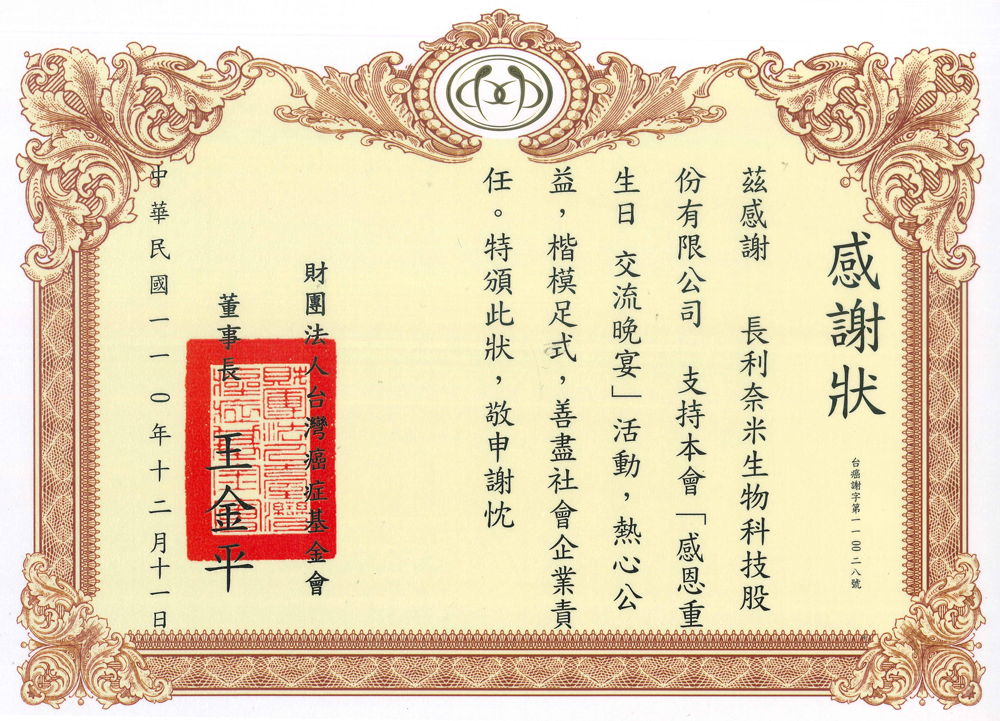 感謝狀
台癌謝字第一一００二八號
茲感謝　長利奈米生物科技股
份有限公司　支持本會「感恩重
生日　交流晚宴」活動，熱心公
益，楷模足式，善盡社會企業責
任。特頒此狀，敬申謝忱
財團法人台灣癌症基金會
董事長　王金平
中華民國一一０年十二月十一日